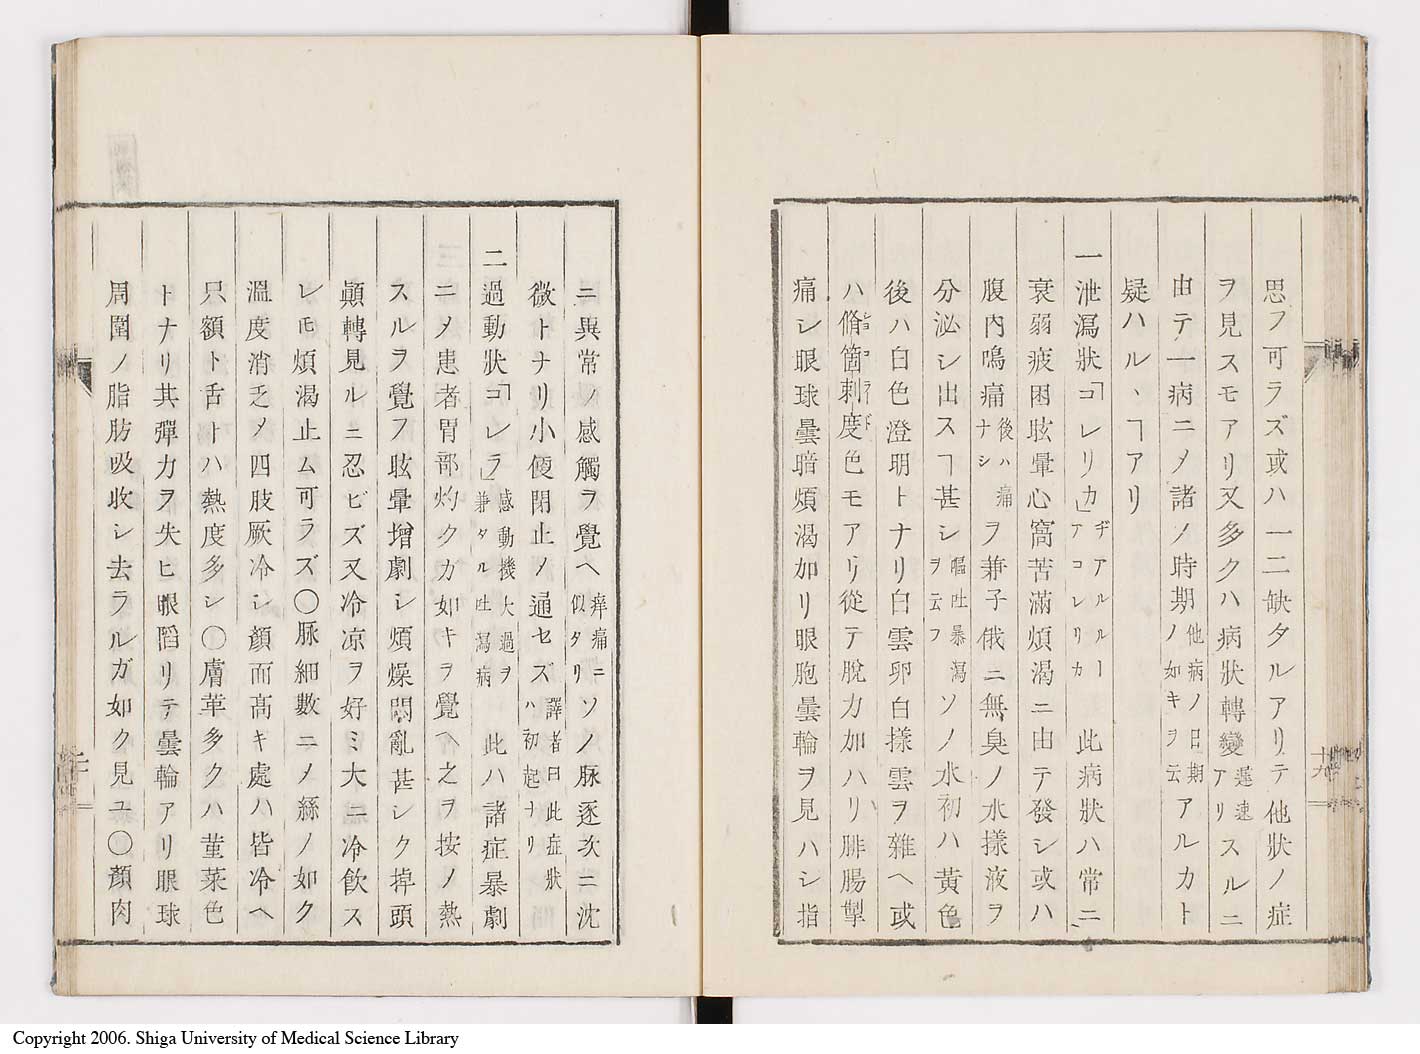 思フ可ラズ或ハ一二缺タルアリテ他狀ノ症
ヲ見スモアリ又多クハ病狀轉變遲速アリスルニ
由テ一病ニ〆諸ノ時期ノ他病ノ日期如キヲ云アルカト
疑ハルヽヿアリ
一泄瀉狀「コレリカ」ヂアルルーアコレリカ此病狀ハ常ニ
衰弱疲困眩暈心窩苦滿煩渴ニ由テ發シ或ハ
腹內鳴痛後ハ痛ナシヲ兼子俄ニ無臭ノ水樣液ヲ
分泌シ出スヿ甚シ嘔吐暴瀉ヲ云フソノ水初ハ黃色
後ハ白色澄明トナリ白雲卵白樣雲ヲ雜ヘ或
ハ脩箇剌度色モアリ從テ脫力加ハリ腓腸掣
痛シ眼球曇暗煩渴加リ眼胞曇輪ヲ見ハシ指
十九
ニ異常ノ感觸ヲ覺ヘ痒痛ニ似タリソノ脉逐次ニ沈
微トナリ小便閉止ノ通セズ譯者曰此症狀ハ初起ナリ
二過動狀「コレラ」感動機大過ヲ兼タル吐瀉病此ハ諸症暴劇
ニ〆患者胃部灼クカ如キヲ覺ヘ之ヲ按ノ熱
スルヲ覺フ眩暈增劇シ煩燥悶亂甚シク掉頭
顚轉見ルニ忍ビズ又冷凉ヲ好ミ大ニ冷飮ス
レモ煩渴止ム可ラズ〇脉細數ニ〆絲ノ如ク
溫度消乏〆四肢厥冷シ顏面高キ處ハ皆冷ヘ
只額ト舌トハ熱度多シ〇膚革多クハ菫菜色
トナリ其彈力ヲ失ヒ眼䧟リテ曇輪アリ眼球
周圍ノ脂肪吸收シ去ラルガ如ク見ユ〇顏肉
二十
Copyright 2006. Shiga University of Medical Science Library